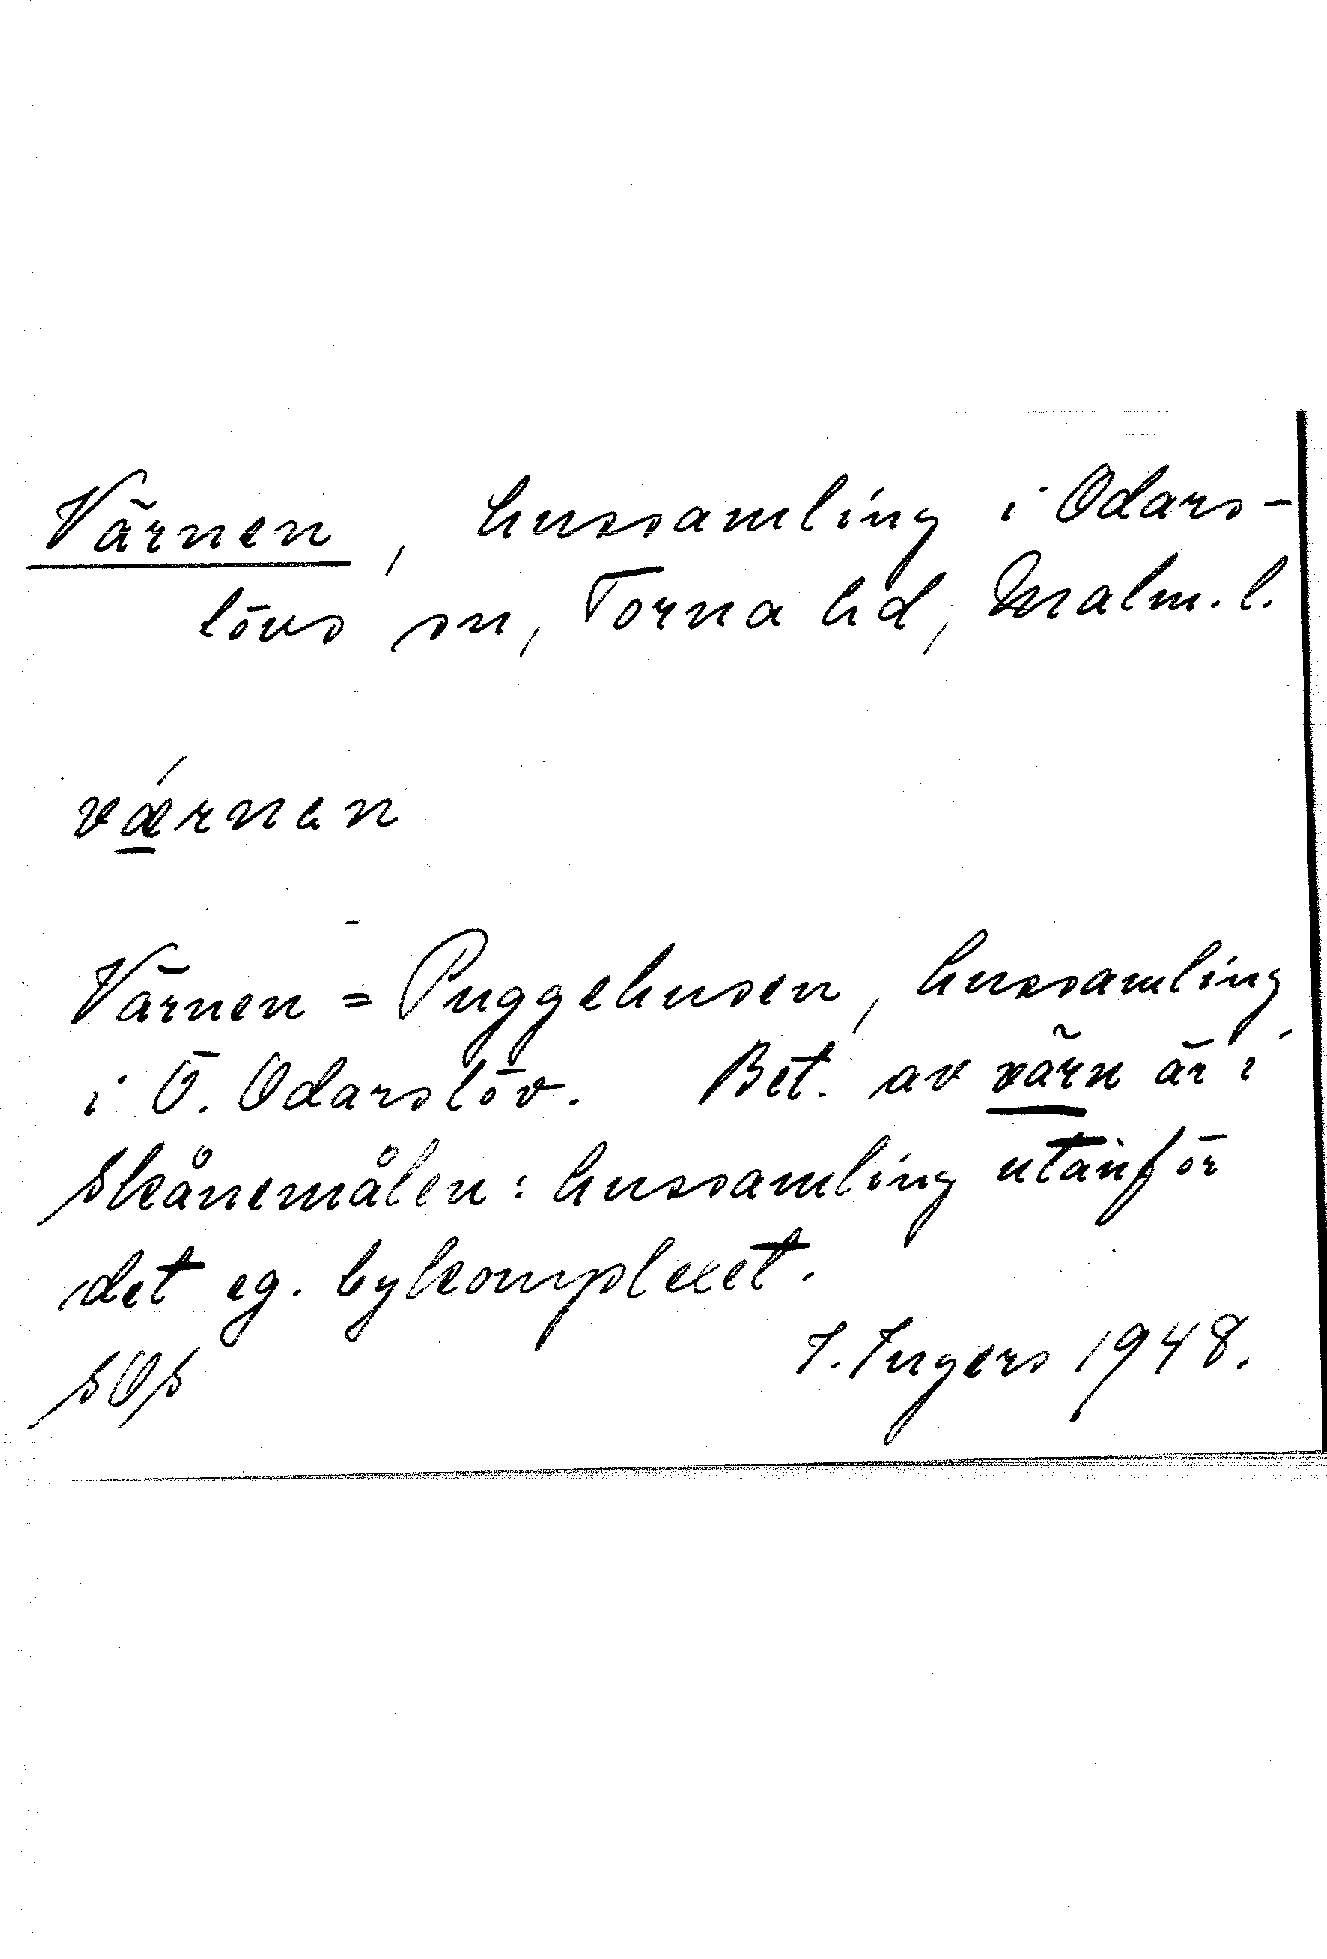 Värnen, hussamling i Odars-
lövs sn, Torna hd, Malm. l.
vǽrnan
Värnen = Puggehusen, hussamling
i Ö. Odarslöv. Bet. av värn är i
Skånemålen: hussamling utanför
det eg. bykomplexet.
SOS I. Ingers 1948.